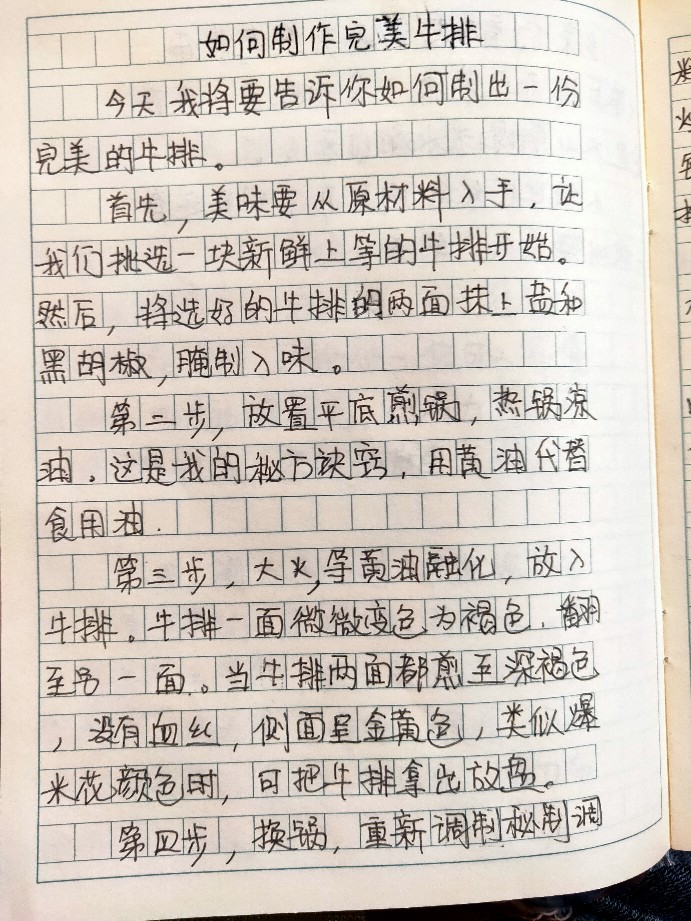 如何制作完美牛排
今天我将要告诉你如何制出一份
完美的牛排。
首先,美味要从原材料入手,让
我们挑选一块新鲜上等的牛排开始。
然后,将选好的牛排的两面抹上盐和
黑胡椒,腌制入味。
第二步,放置平底煎锅,热锅凉
油。这是我的秘方诀窍,用黄油代替
食用油.
第三步,大火,等黄油融化,放入
牛排。牛排一面微微变色为褐色.翻
至另一面。当牛排两面都煎至深褐色
,没有血丝,侧面呈金黄色,类似爆
米花颜色时,可把牛排拿出放盘。
第四步,换锅,重新调制秘制调